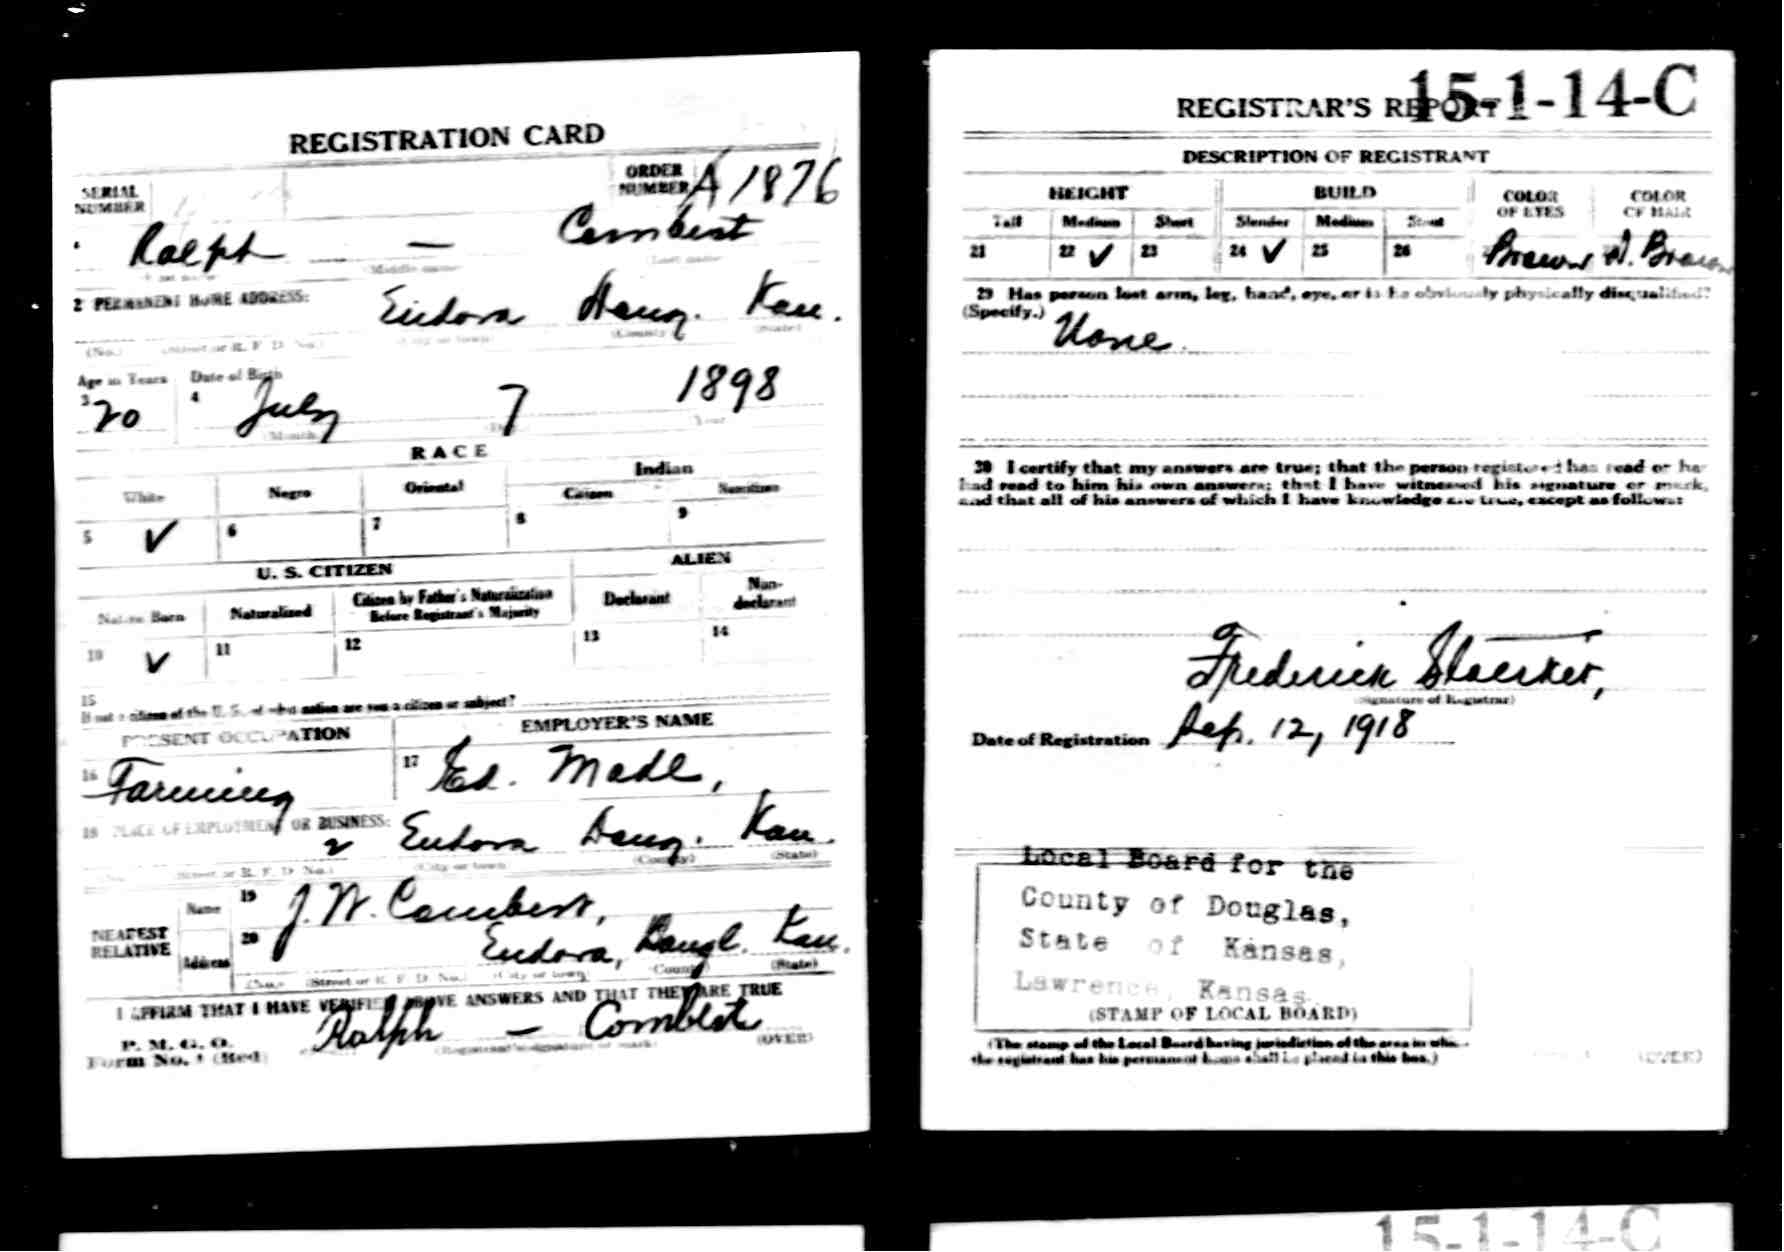 REGISTRATION CARD
SERIAL NUMBER
ORDER NUMBER A 1876
Ralph — Combest
(Middle name) (Last name)
2 PERMANENT HOME ADDRESS: Eudora Doug. Kan.
(No.) (Street or R. F. D. No.) (City or town) (County) (State)
Age in Years Date of Birth
3 20 4 July 7 1898
(Month) (Day) Year
RACE
White Negro Oriental Indian
Citizen Noncitizen
5 ✓ 6 7 8 9
U. S. CITIZEN ALIEN
Native Born Naturalized Citizen by Father's Naturalization Before Registrant's Majority Declarant Non-declarant
10 ✓ 11 12 13 14
15
If not a citizen of the U. S., of what nation are you a citizen or subject?
PRESENT OCCUPATION EMPLOYER'S NAME
16 Farming 17 Ed. Madl,
18 PLACE OF EMPLOYMENT OR BUSINESS:
2 Eudora Doug. Kan.
(No.) (Street or R. F. D. No.) (City or town) (County) (State)
NEAREST RELATIVE
Name 19 J. W. Combest,
Address 20 Eudora, Dougl. Kan.
(No.) (Street or R. F. D. No.) (City or town) (County) (State)
I AFFIRM THAT I HAVE VERIFIED ABOVE ANSWERS AND THAT THEY ARE TRUE
P. M. G. O.
Form No. 1 (Red) Ralph — Combest
(Registrant's signature or mark) (OVER)
15-1-14-C
REGISTRAR'S REPORT
DESCRIPTION OF REGISTRANT
HEIGHT BUILD COLOR OF EYES COLOR OF HAIR
Tall Medium Short Slender Medium Stout
21 22 ✓ 23 24 ✓ 25 26 Brown D. Brown
29 Has person lost arm, leg, hand, eye, or is he obviously physically disqualified?
(Specify.) None.
30 I certify that my answers are true; that the person registered has read or has
had read to him his own answers; that I have witnessed his signature or mark,
and that all of his answers of which I have knowledge are true, except as follows:
Frederick
(Signature of Registrar)
Date of Registration Sep. 12, 1918
Local Board for the
County of Douglas,
State of Kansas,
Lawrence, Kansas.
(STAMP OF LOCAL BOARD)
(The stamp of the Local Board having jurisdiction of the area in which
the registrant has his permanent home shall be placed in this box.)
(OVER)
15-1-14-C